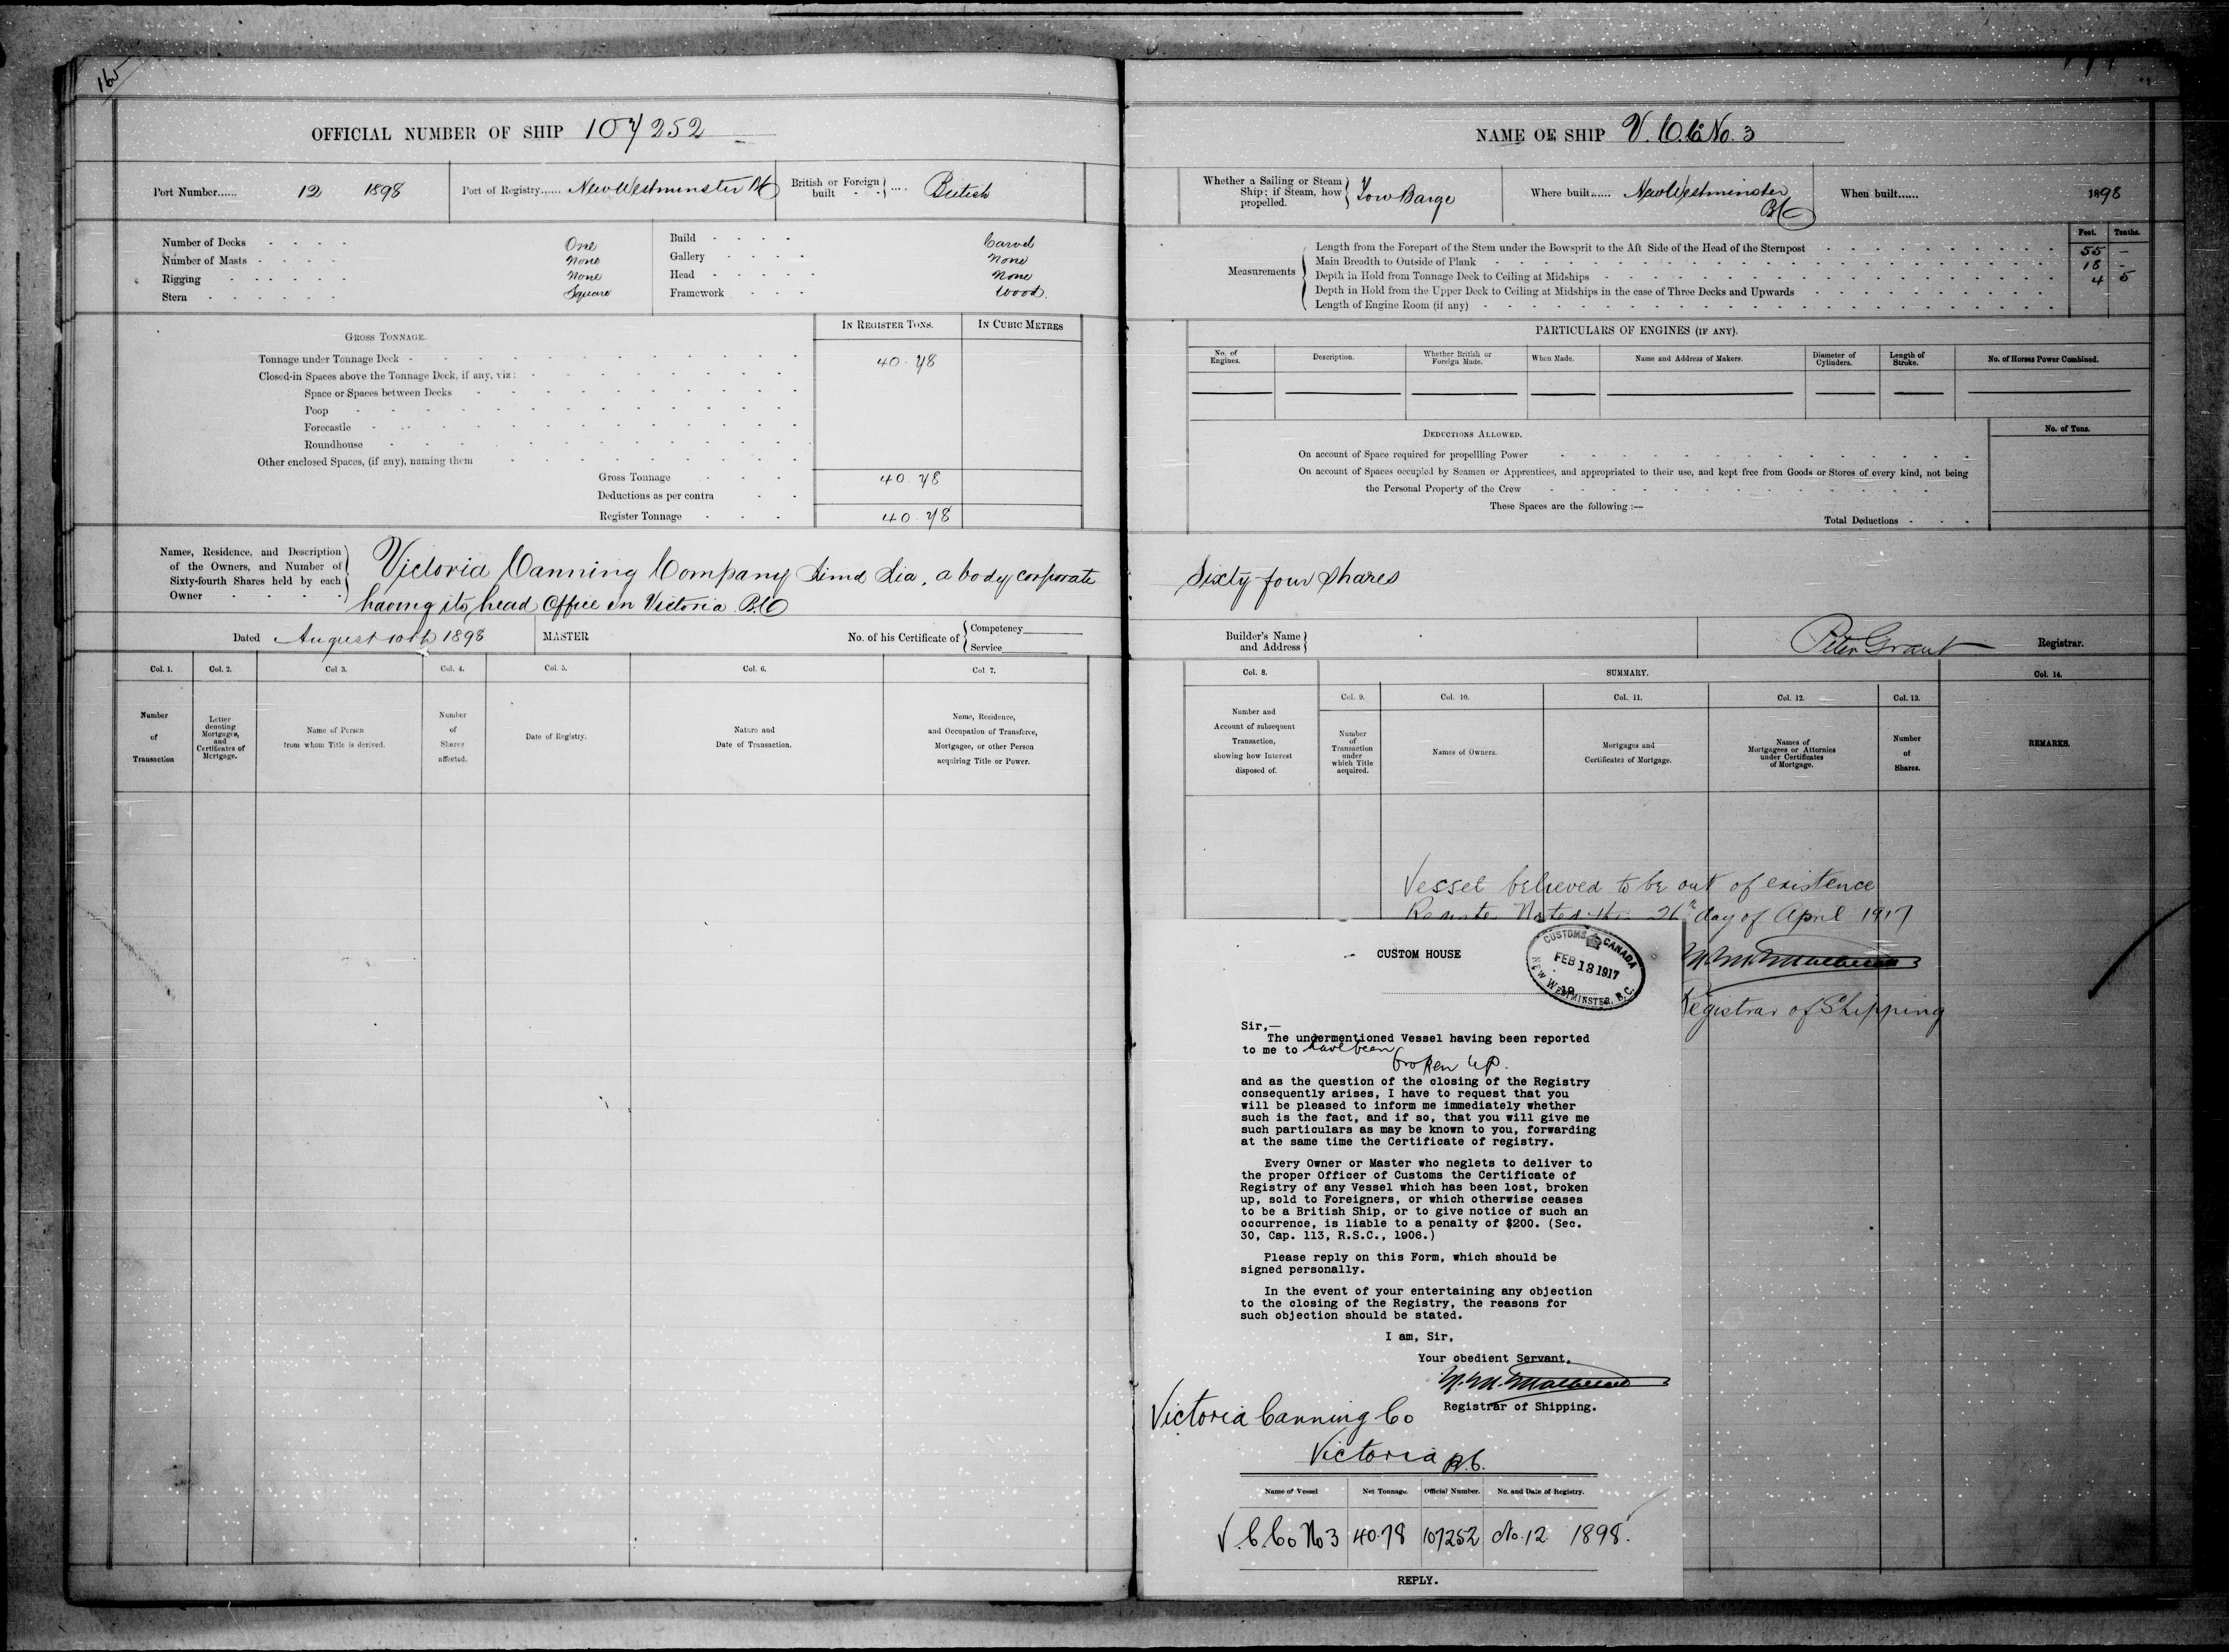 160
OFFICIAL NUMBER OF SHIP 107252
Port Number...... 12 1898 Port of Registry...... New Westminster BC British or Foreign built .... British
Number of Decks One
Number of Masts None
Rigging None
Stern Square
Build Carvel
Gallery None
Head None
Framework Wood.
GROSS TONNAGE.
IN REGISTER TONS. IN CUBIC METRES
Tonnage under Tonnage Deck 40.78
Closed-in Spaces above the Tonnage Deck, if any, viz:
Space or Spaces between Decks
Poop
Forecastle
Roundhouse
Other enclosed Spaces, (if any), naming them
Gross Tonnage 40.78
Deductions as per contra
Register Tonnage 40.78
Names, Residence, and Description
of the Owners, and Number of
Sixty-fourth Shares held by each
Owner
Victoria Canning Company, a body corporate
having its head Office in Victoria. BC
Dated August 10th 1898 MASTER No. of his Certificate of Competency
Service
Col. 1. Col. 2. Col 3. Col. 4. Col. 5. Col. 6. Col 7.
Number of Transaction
Letter denoting Mortgages, and Certificates of Mortgage.
Name of Person from whom Title is derived.
Number of Shares affected.
Date of Registry.
Nature and Date of Transaction.
Name, Residence, and Occupation of Transferee, Mortgagee, or other Person acquiring Title or Power.
NAME OF SHIP V.C.Co No. 3
Whether a Sailing or Steam Ship; if Steam, how propelled. Tow Barge Where built...... New Westminster BC When built...... 1898
Feet. Tenths.
Measurements
Length from the Forepart of the Stem under the Bowsprit to the Aft Side of the Head of the Sternpost 55 -
Main Breadth to Outside of Plank 18 -
Depth in Hold from Tonnage Deck to Ceiling at Midships 4 5
Depth in Hold from the Upper Deck to Ceiling at Midships in the case of Three Decks and Upwards
Length of Engine Room (if any)
PARTICULARS OF ENGINES (IF ANY).
No. of Engines. Description. Whether British or Foreign Made. When Made. Name and Address of Makers. Diameter of Cylinders. Length of Stroke. No. of Horses Power Combined.
DEDUCTIONS ALLOWED. No. of Tons.
On account of Space required for propellling Power
On account of Spaces occupied by Seamen or Apprentices, and appropriated to their use, and kept free from Goods or Stores of every kind, not being
the Personal Property of the Crew
These Spaces are the following :—
Total Deductions
Sixty four Shares
Builder's Name and Address
Peter Grant Registrar.
Col. 8. SUMMARY. Col. 14.
Col. 9. Col. 10. Col. 11. Col. 12. Col. 13.
Number and Account of subsequent Transaction, showing how Interest disposed of.
Number of Transaction under which Title acquired.
Names of Owners.
Mortgages and Certificates of Mortgage.
Names of Mortgagees or Attornies under Certificates of Mortgage.
Number of Shares.
REMARKS.
Vessel believed to be out of existence
26th day of April 1917
Registrar of Shipping
CUSTOM HOUSE
CUSTOMS CANADA
FEB 13 1917
NEW WESTMINSTER, B.C.
Sir,—
The undermentioned Vessel having been reported
to me to have been
broken up.
and as the question of the closing of the Registry
consequently arises, I have to request that you
will be pleased to inform me immediately whether
such is the fact, and if so, that you will give me
such particulars as may be known to you, forwarding
at the same time the Certificate of registry.
Every Owner or Master who neglets to deliver to
the proper Officer of Customs the Certificate of
Registry of any Vessel which has been lost, broken
up, sold to Foreigners, or which otherwise ceases
to be a British Ship, or to give notice of such an
occurrence, is liable to a penalty of $200. (Sec.
30, Cap. 113, R.S.C., 1906.)
Please reply on this Form, which should be
signed personally.
In the event of your entertaining any objection
to the closing of the Registry, the reasons for
such objection should be stated.
I am, Sir,
Your obedient Servant,
Registrar of Shipping.
Victoria Canning Co
Victoria B.C.
Name of Vessel Net Tonnage. Official Number. No. and Date of Registry.
V.C.Co No 3 40.78 107252 No. 12 1898.
REPLY.